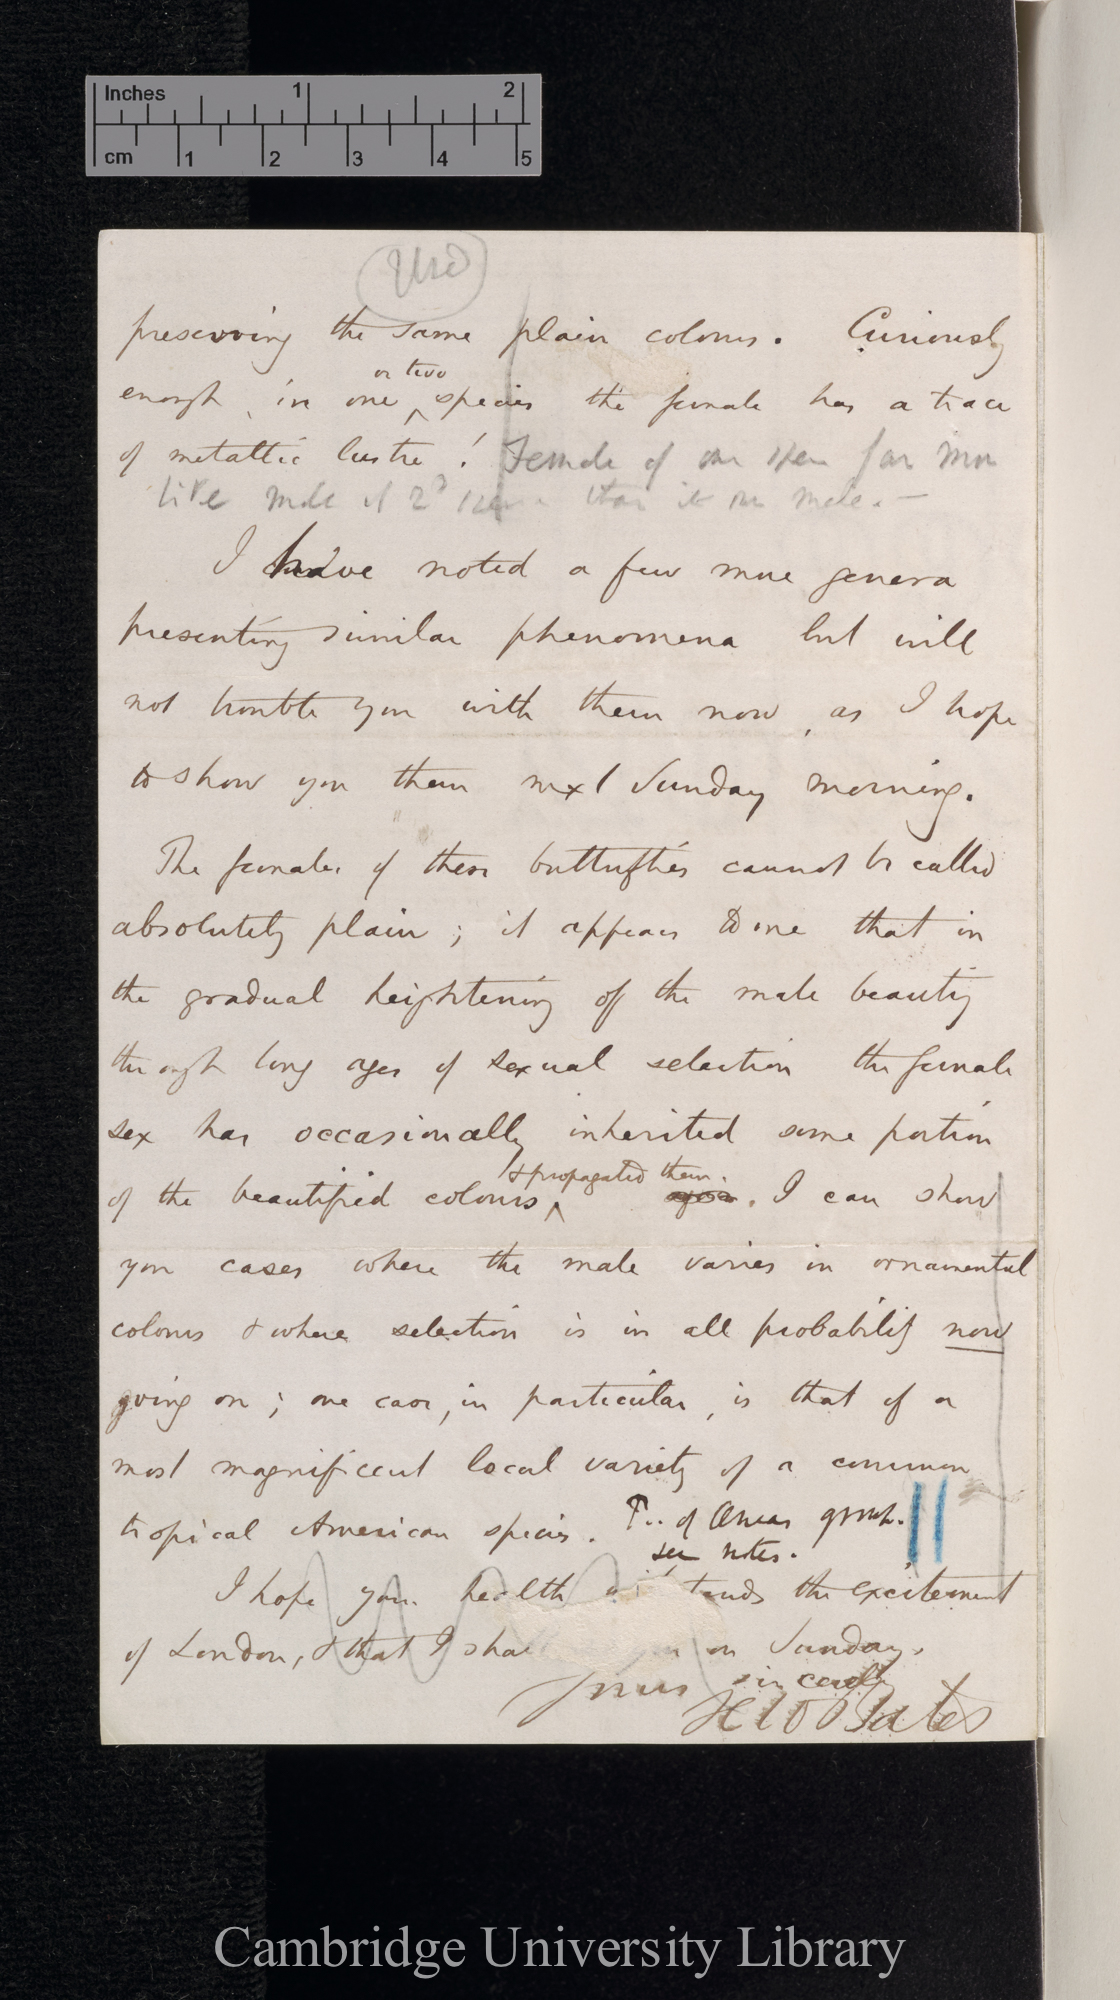 Inches 1 2
cm 1 2 3 4 5
Used
preserving the same plain colours. Curiously
or two
enough, in one ^ species the female has a trace
of metallic lustre! Female of one spec far more
like male of 2d than it own male.—
I have noted a few more genera
presenting similar phenomena but will
not trouble you with them now, as I hope
to show you them next Sunday morning.
The females of these butterflies cannot be called
absolutely plain; it appears to me that in
the gradual heightening of the male beauty
through long ages of sexual selection the female
sex has occasionally inherited some portion
& propagated them.
of the beautified colours ^ . I can show
you cases where the male varies in ornamental
colours & where selection is in all probability now
going on; one case, in particular, is that of a
most magnificent local variety of a common
tropical American species. P.. of Æneas group.
see notes.
I hope your health the excitement
of London, & that I on Sunday.
Yours sincerely
H W Bates
Cambridge University Library